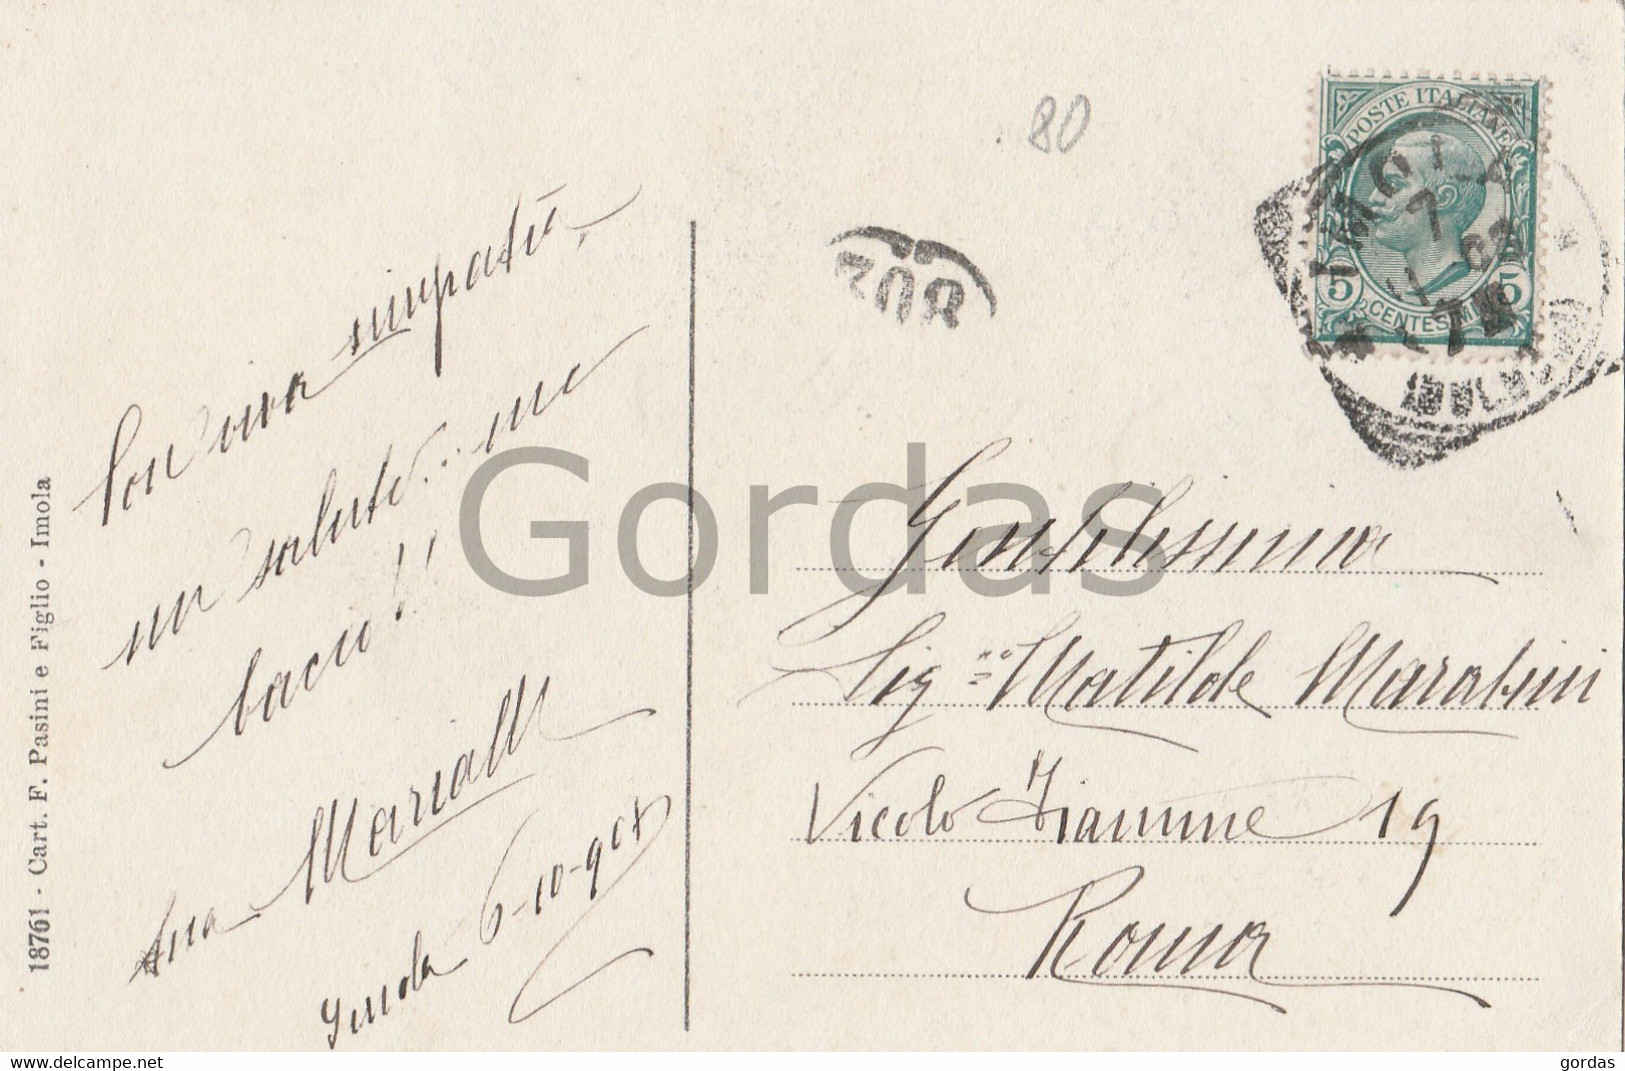 18761 - Cart. F. Pasini e Figlio - Imola
Con viva simpatia,
un saluto.. un
bacio!!
Sua Marialli
Imola 6-10-907
80
POSTE ITALIANE
5 CENTESIMI 5
IMOLA
7
(BOLOGNA)
Gentilissima
Sig.na Matilde Marabini
Vicolo Fiamme 19
Roma
Gordas
www.delcampe.net
gordas